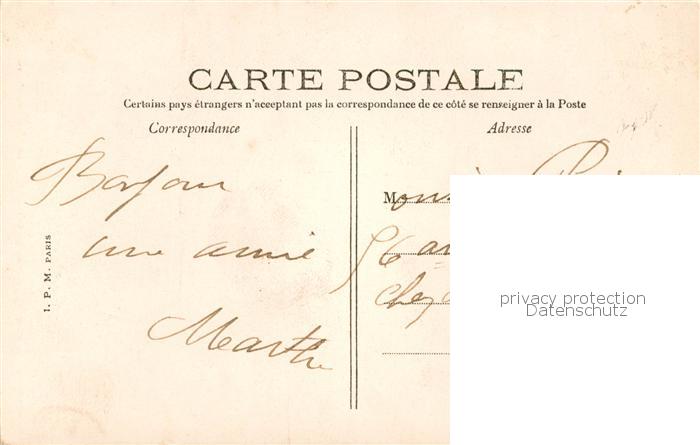 CARTE POSTALE
Certains pays étrangers n'acceptant pas la correspondance de ce côté se renseigner à la Poste
Correspondance
Adresse
Bonjour
une amie
Marthe
I. P. M. PARIS
M
56
chez
privacy protection
Datenschutz